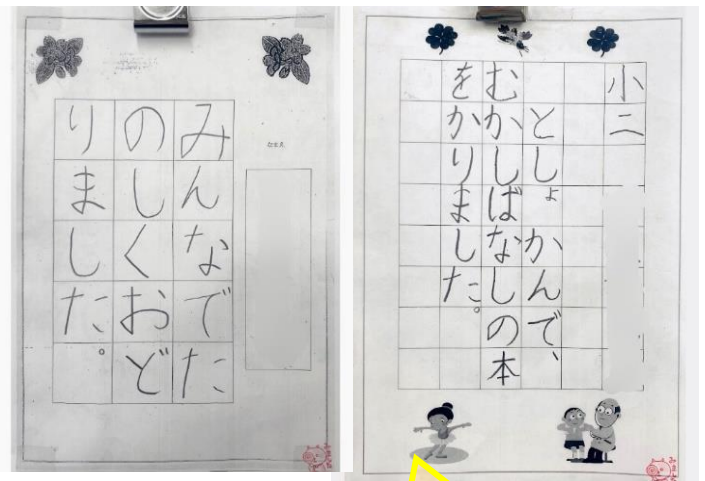 みんなでた
のしくおど
りました。
小二
としょかんで、
むかしばなしの本
をかりました。